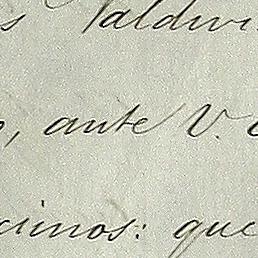 s Valdivi
, ante V. E
cimos: que